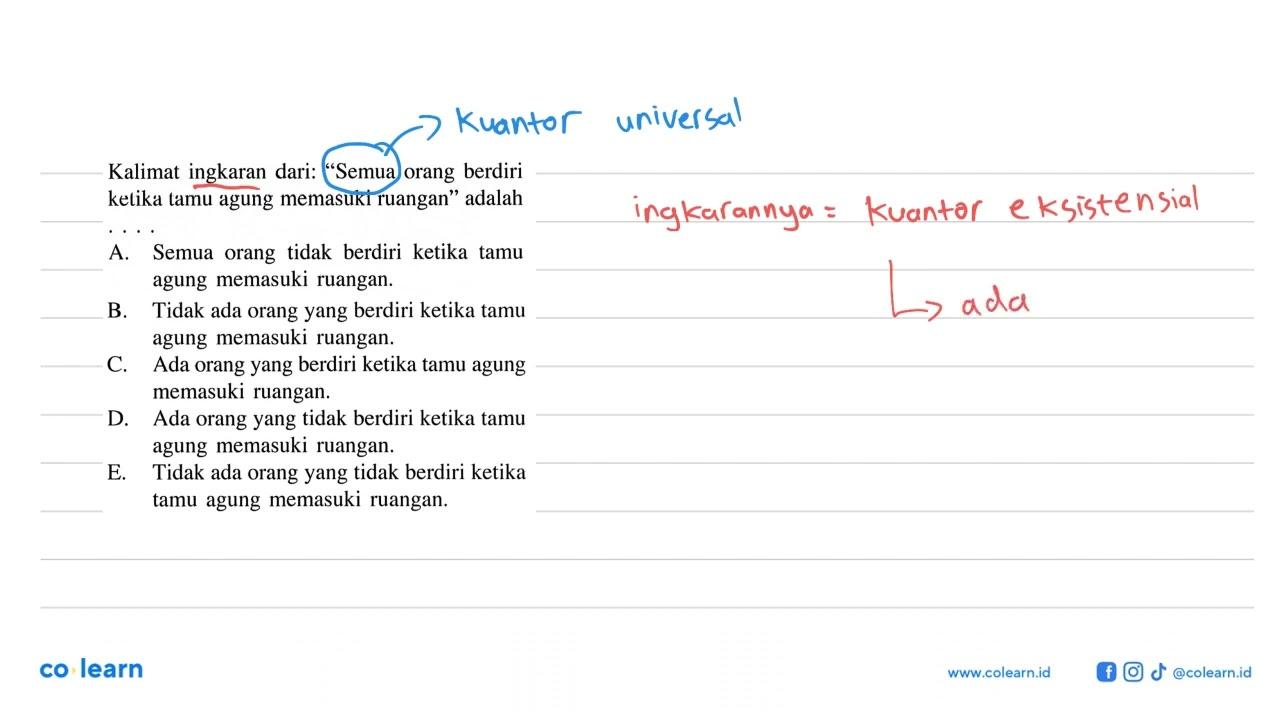 Kuantor universal
Kalimat ingkaran dari: “Semua orang berdiri
ketika tamu agung memasuki ruangan” adalah
. . . .
A. Semua orang tidak berdiri ketika tamu
agung memasuki ruangan.
B. Tidak ada orang yang berdiri ketika tamu
agung memasuki ruangan.
C. Ada orang yang berdiri ketika tamu agung
memasuki ruangan.
D. Ada orang yang tidak berdiri ketika tamu
agung memasuki ruangan.
E. Tidak ada orang yang tidak berdiri ketika
tamu agung memasuki ruangan.
ingkarannya = kuantor eksistensial
ada
co learn
www.colearn.id
@colearn.id